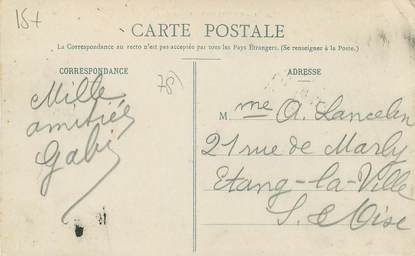 15+
CARTE POSTALE
La Correspondance au recto n'est pas acceptée par tous les Pays Étrangers. (Se renseigner à la Poste.)
CORRESPONDANCE
78
ADRESSE
Mille
amitiés
Gabi
Mme A. Lancelin
21 rue de Marly
Etang-la-Ville
S. & Oise